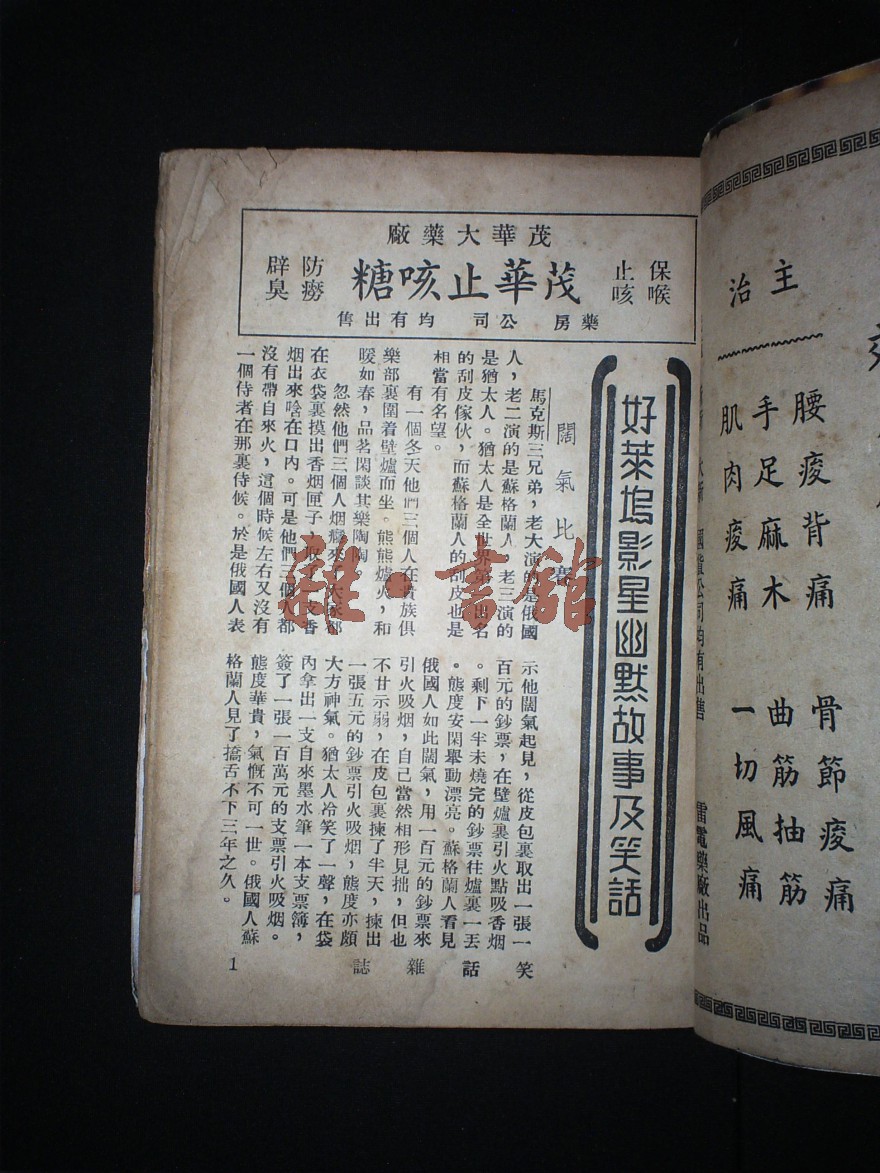 茂華大藥廠
保喉
止咳
茂華止咳糖
防癆
辟臭
藥房 公司 均有出售
好萊塢影星幽默故事及笑話
闊氣比賽
馬克斯三兄弟，老大演的是俄國
人，老二演的是蘇格蘭人，老三演的
是猶太人。猶太人是全世界第一出名
的刮皮傢伙，而蘇格蘭人的刮皮也是
相當有名望。
有一個冬天他們三個人在貴族俱
樂部裏圍着壁爐而坐。熊熊爐火，和
暖如春，品茗閑談其樂陶陶。
忽然他們三個人烟癮來了大家都
在衣袋裏摸出香烟匣子，取了一支香
烟出來啥在口內。可是他們三個人都
沒有帶自來火，這個時候左右又沒有
一個侍者在那裏侍候。於是俄國人表
示他闊氣起見，從皮包裏取出一張一
百元的鈔票，在壁爐裏引火點吸香烟
。剩下一半未燒完的鈔票往爐裏一丟
。態度安閑舉動漂亮。蘇格蘭人看見
俄國人如此闊氣，用一百元的鈔票來
引火吸烟，自己當然相形見拙，但也
不甘示弱，在皮包裏揀了半天，揀出
一張五元的鈔票引火吸烟，態度亦頗
大方神氣。猶太人冷笑了一聲，在袋
內拿出一支自來墨水筆一本支票簿，
簽了一張一百萬元的支票引火吸烟。
態度華貴，氣慨不可一世。俄國人蘇
格蘭人見了撟舌不下三年之久。
笑話雜誌
1
雜·書館
主治
腰痠背痛
手足麻木
肌肉痠痛
骨節痠痛
曲筋抽筋
一切風痛
國貨公司均有出售
雷電藥廠出品